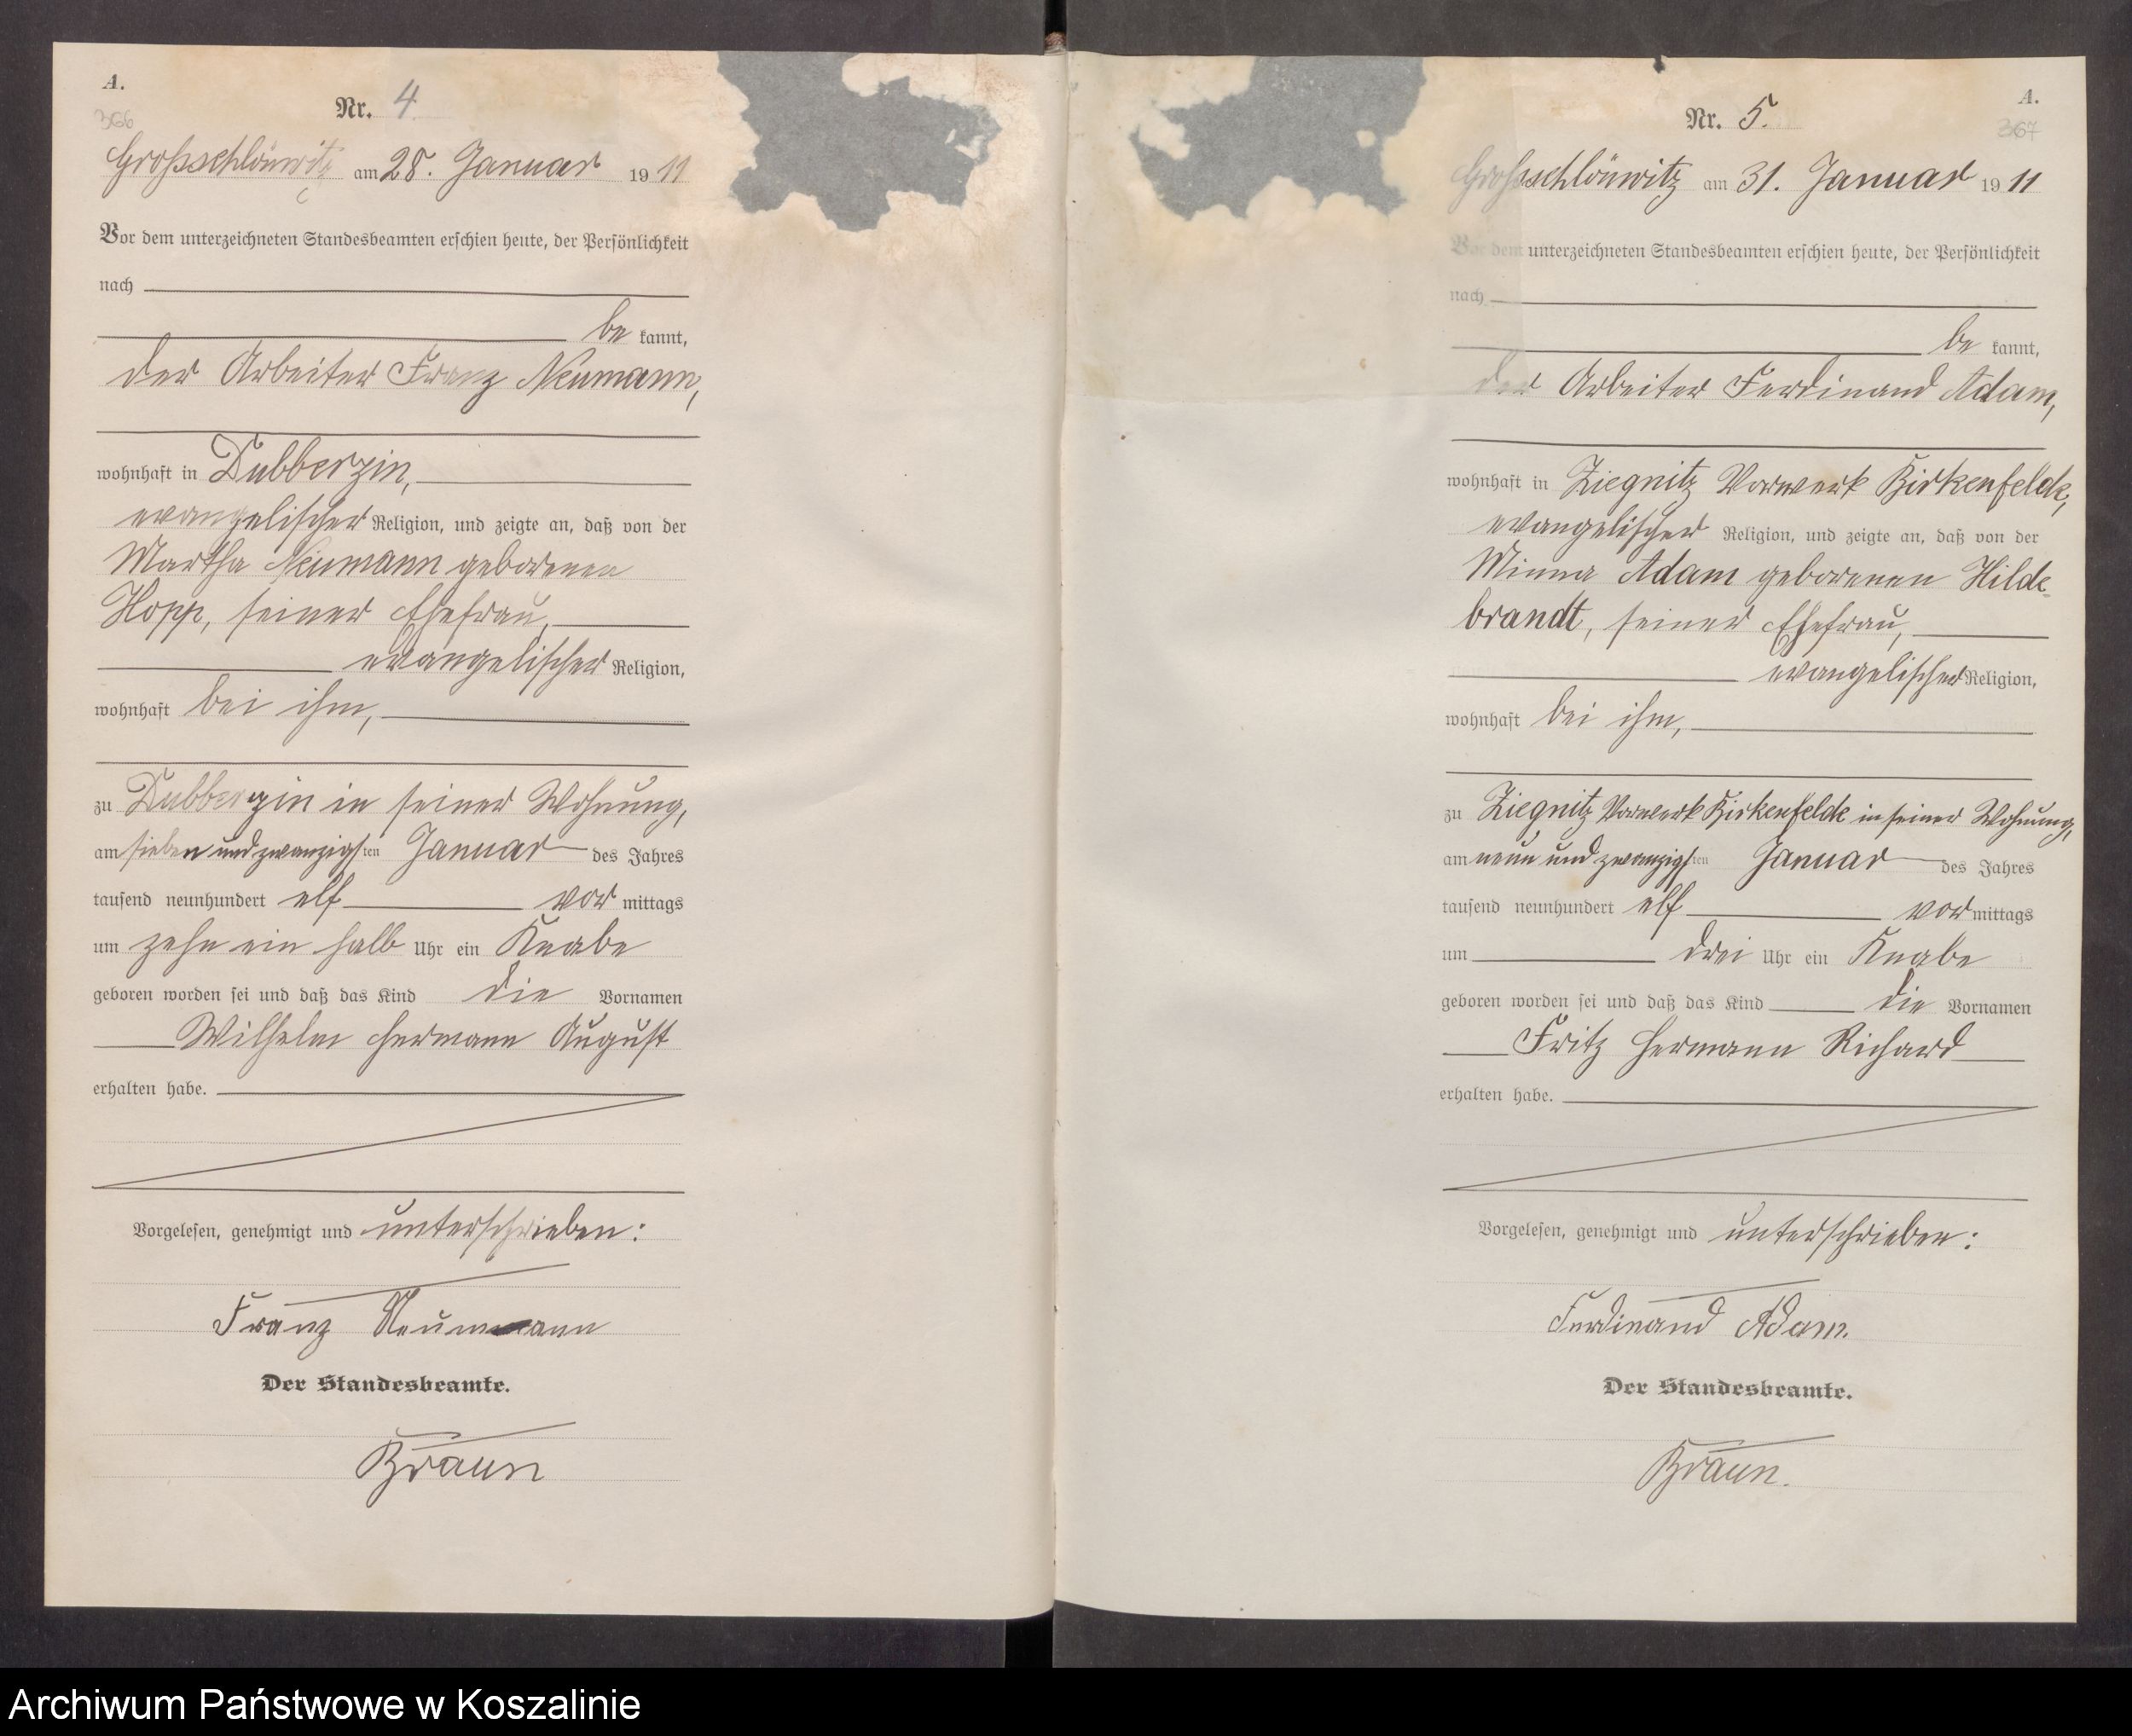 A.
366
Nr. 4
Grossschlönwitz am 28. Januar 1911
Vor dem unterzeichneten Standesbeamten erschien heute, der Persönlichkeit
nach
be kannt,
der Arbeiter Franz Neumann,
wohnhaft in Dubberzin,
evangelischer Religion, und zeigte an, daß von der
Martha Neumann geborenen
Hopp, seiner Ehefrau,
evangelischer Religion,
wohnhaft bei ihm,
zu Dubberzin in seiner Wohnung,
am sieben und zwanzigsten Januar des Jahres
tausend neunhundert elf vor mittags
um zehn ein halb Uhr ein Knabe
geboren worden sei und daß das Kind die Vornamen
Wilhelm Hermann August
erhalten habe.
Vorgelesen, genehmigt und unterschrieben:
Franz Neumann
Der Standesbeamte.
Braun
A.
367
Nr. 5.
Grossschlönwitz am 31. Januar 1911
Vor dem unterzeichneten Standesbeamten erschien heute, der Persönlichkeit
nach
be kannt,
der Arbeiter Ferdinand Adam,
wohnhaft in Ziegnitz Vorwerk Birkenfelde,
evangelischer Religion, und zeigte an, daß von der
Minna Adam geborenen Hilde-
brandt, seiner Ehefrau,
evangelischer Religion,
wohnhaft bei ihm,
zu Ziegnitz Vorwerk Birkenfelde in seiner Wohnung,
am neun und zwanzigsten Januar des Jahres
tausend neunhundert elf vor mittags
um drei Uhr ein Knabe
geboren worden sei und daß das Kind die Vornamen
Fritz Hermann Richard
erhalten habe.
Vorgelesen, genehmigt und unterschrieben:
Ferdinand Adam.
Der Standesbeamte.
Braun.
Archiwum Państwowe w Koszalinie